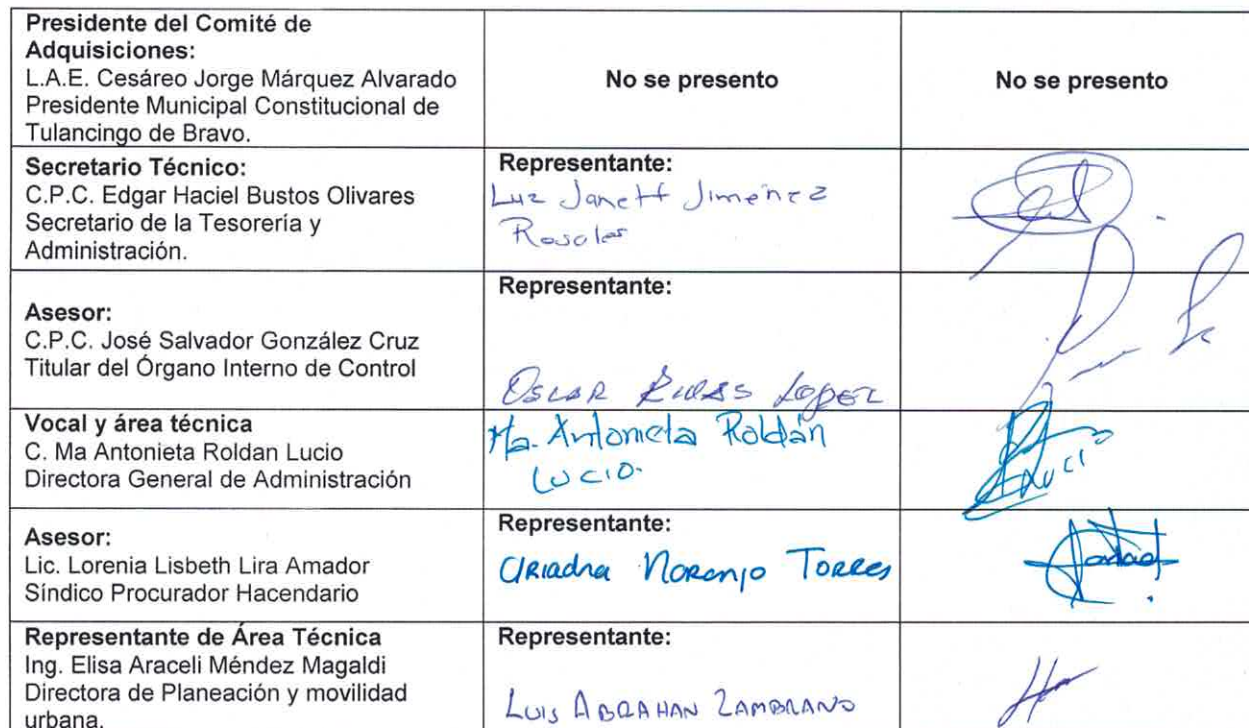 Presidente del Comité de
Adquisiciones:
L.A.E. Cesáreo Jorge Márquez Alvarado
Presidente Municipal Constitucional de
Tulancingo de Bravo.
No se presento
No se presento
Secretario Técnico:
C.P.C. Edgar Haciel Bustos Olivares
Secretario de la Tesorería y
Administración.
Representante:
Luz Janett Jiménez
Rosales
Asesor:
C.P.C. José Salvador González Cruz
Titular del Órgano Interno de Control
Representante:
OSCAR RIVAS LOPEZ
Vocal y área técnica
C. Ma Antonieta Roldan Lucio
Directora General de Administración
Ma. Antonieta Roldán
Lucio.
Asesor:
Lic. Lorenia Lisbeth Lira Amador
Síndico Procurador Hacendario
Representante:
Ariadna Naranjo Torres
Representante de Área Técnica
Ing. Elisa Araceli Méndez Magaldi
Directora de Planeación y movilidad
urbana.
Representante:
LUIS ABRAHAN ZAMBRANO